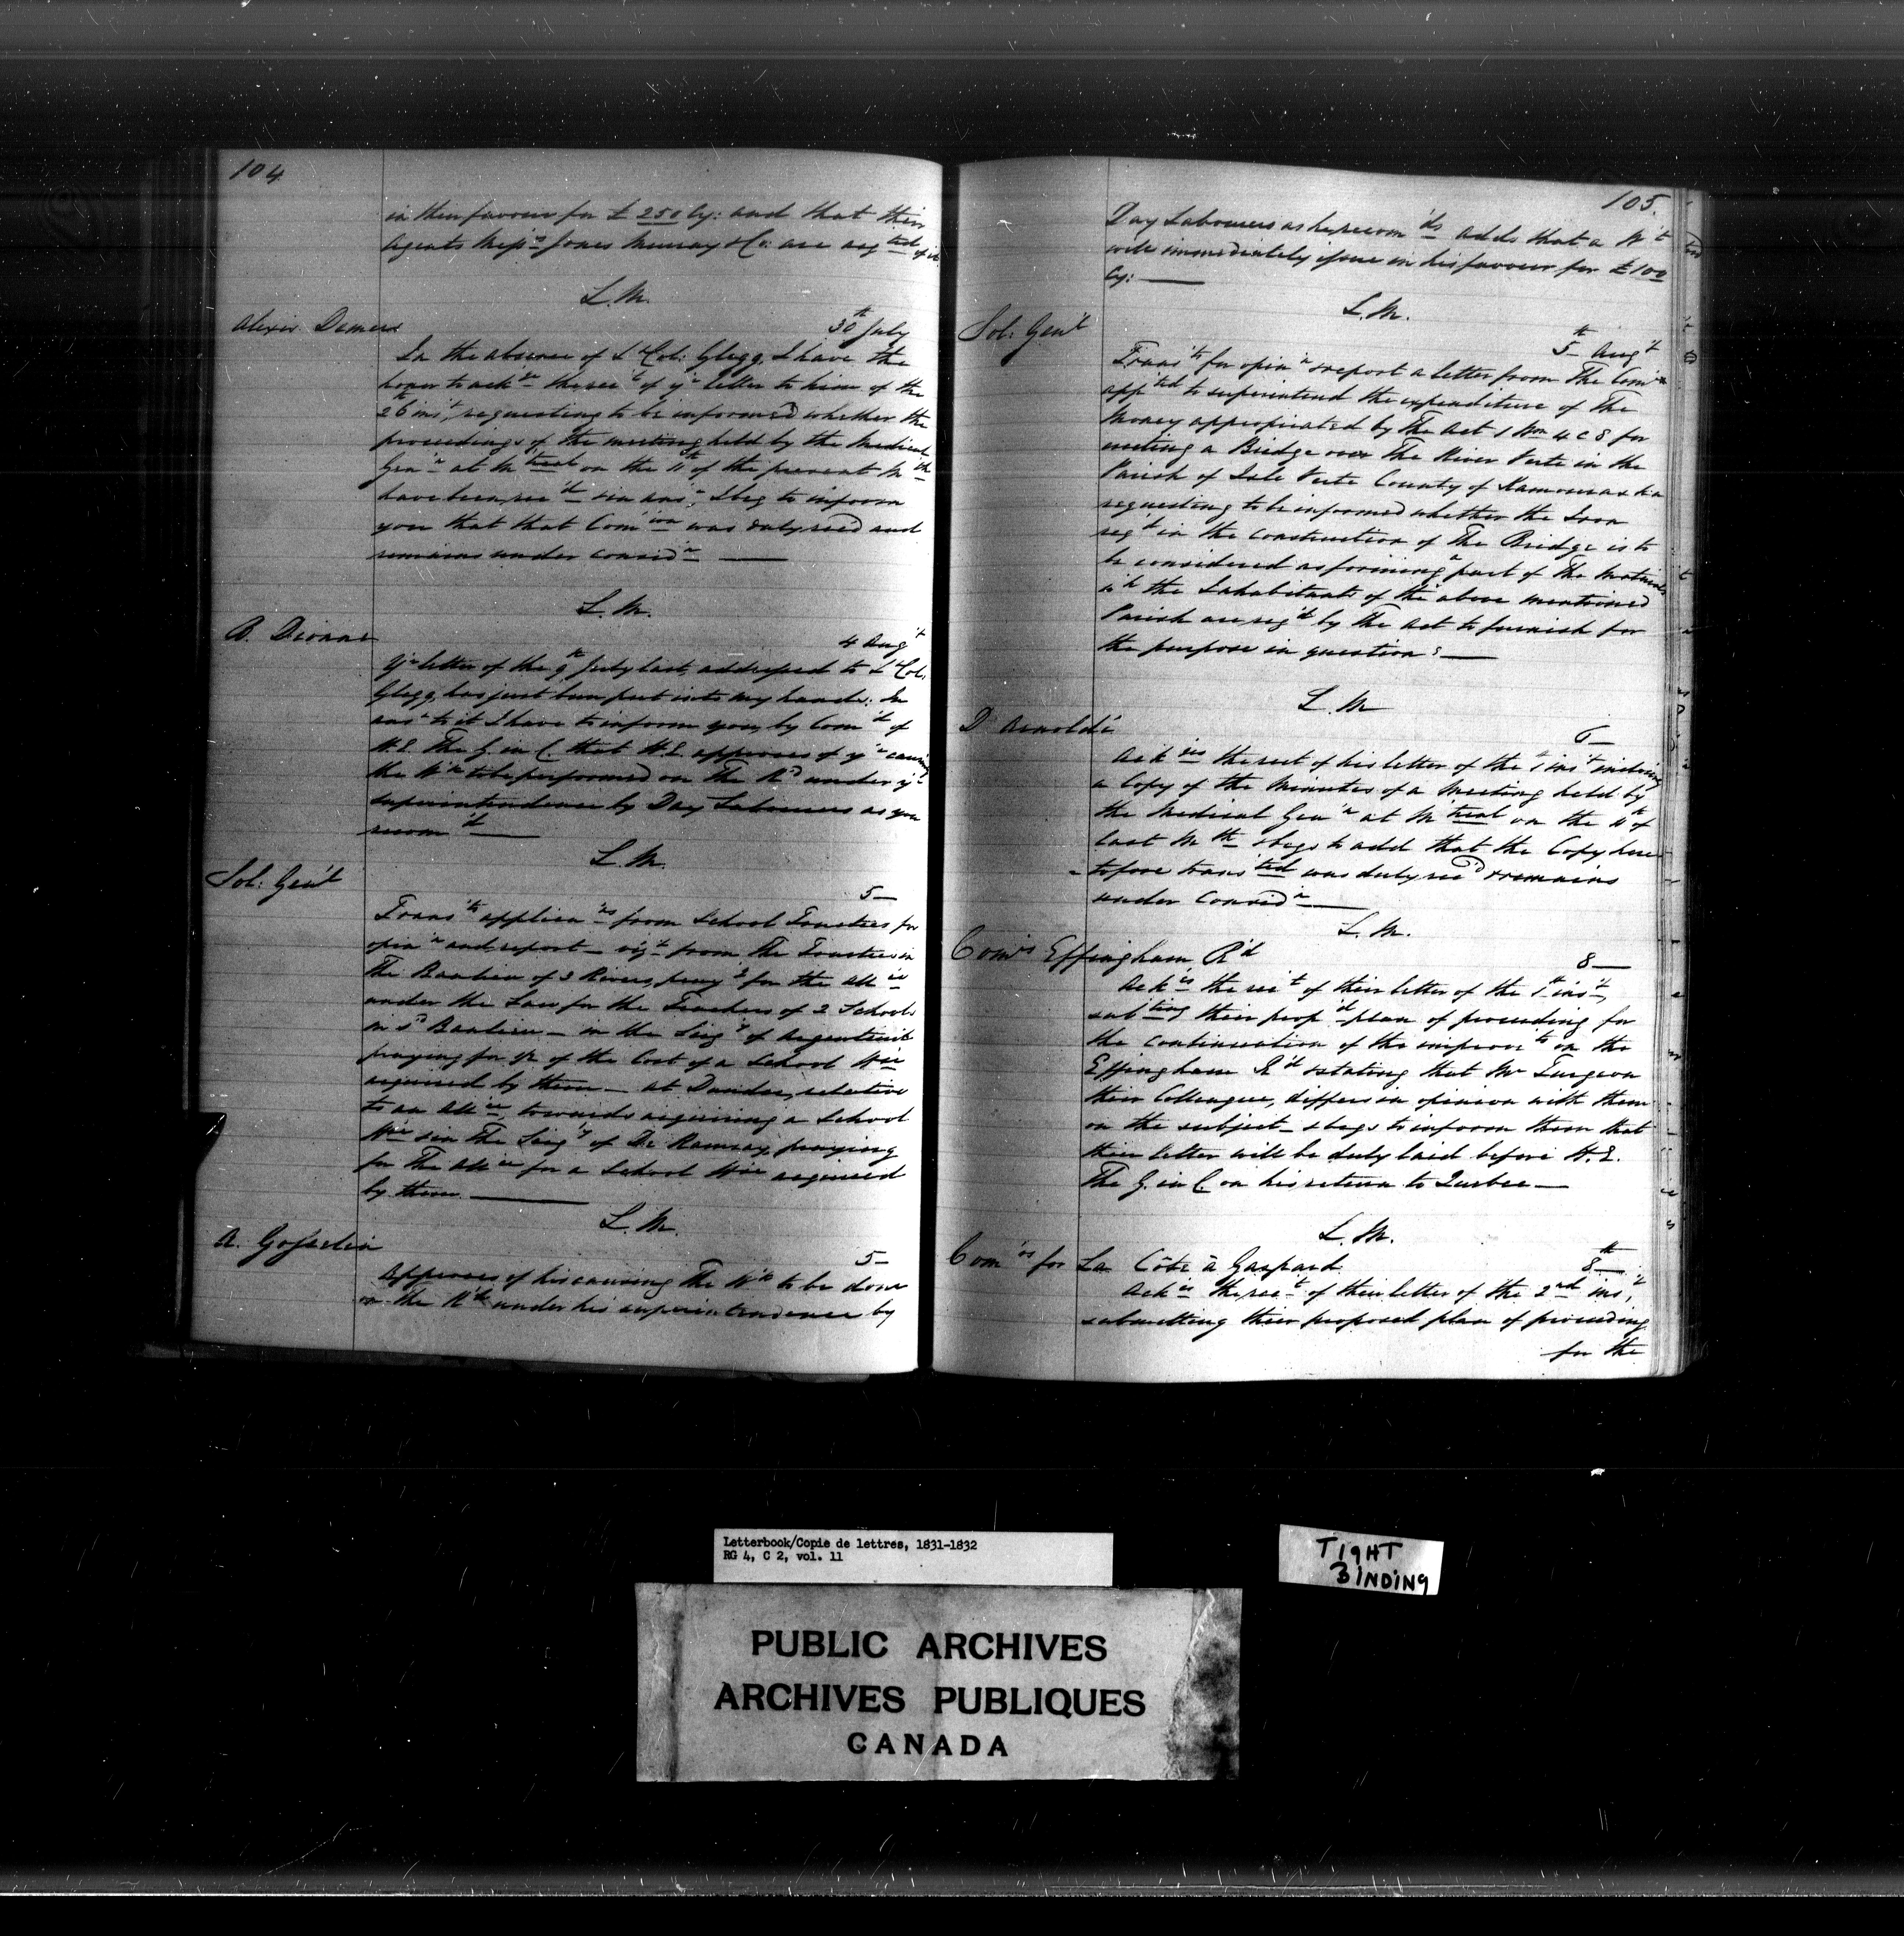 104
in their favour for £250 Cy: and that their
Agents Messrs Jones Murray & Co: are acqted of it.
L. M.
Alexis Demers
30th July
In the absence of Lt Col: Glegg, I have the
honor to ackge the rect of yr letter to him of the
26th inst, requesting to be informed whether the
proceedings of the meeting held by the Medical
Genn at Mtreal on the 11th of the present Mth
have been recd & in ansr I beg to inform
you that that Comion was duly recd and
remains under considn
L. M.
A. Dionne
4 Augt
Yr letter of the 9th July last, addressed to Lt Col.
Glegg, has just been put into my hands: In
ansr to it I have to inform you, by Comd of
H.E. The G. in C. that H.E. approves of yr causing
the Wk to be performed on the Rd under yr
superintendence by Day Labourers as you
recomd
L. M.
Sol: Gen'l
5
Transts applicans from School Trustees for
opinn and report — vizt from The Trustees in
The Banlieu of 3 Rivers, prayg for the Allce
under the Law for the Teachers of 2 Schools
in sd Banlieu — in the Seigy of Argenteuil
praying for ½ of the Cost of a School Hse
acquired by them — at Dundee, relative
to an Allce towards acquiring a School
Hse & in The Seigy of De Ramsay, praying
for The Allce for a School Hse acquired
by them
L. M.
A. Gosselin
5
Approves of his causing The Wk to be done
on the Rd under his superintendence by
105
Day Labourers as he recomds adds that a Wt
will immediately issue in his favour for £100
Cy:
L. M.
Sol: Gen'l
5th Augt
Transts for opinn & report a letter from The Comrs
appted to superintend the expenditure of The
Money appropriated by The Act 1 Wm 4 C 8 for
erecting a Bridge over The River Verte in the
Parish of Isle Verte County of Kamouraska
requesting to be informed whether the Iron
reqd in the construction of The Bridge is to
be considered as forming a part of The Materials
wh the Inhabitants of the above mentioned
Parish are reqd by The Act to furnish for
the purpose in question:
L. M
D Arnoldi
6
Ackges the rect of his letter of the 1st inst inclosing
a Copy of the Minutes of a Meeting held by
the Medical Genn at Mtreal on the 11th of
last Mth & begs to add that the Copy here
-tofore transted was duly recd & remains
under Considn
L. M.
Comrs Effingham Rd
8
Ackgs the rect of their letter of the 1st inst,
subting their propd plan of proceeding for
the continuation of the improvts on the
Effingham Rd & stating that Mr Turgeon
their Colleague, differs in opinion with them
on the subject — & begs to inform them that
their letter will be duly laid before H.E.
The G. in C. on his return to Quebec
L. M.
Comrs for La Côte à Gaspard
8th
Ackgs the rect of their letter of the 2nd inst,
submitting their proposed plan of proceeding
for the
Letterbook/Copie de lettres, 1831-1832
RG 4, C 2, vol. 11
TIGHT
BINDING
PUBLIC ARCHIVES
ARCHIVES PUBLIQUES
CANADA